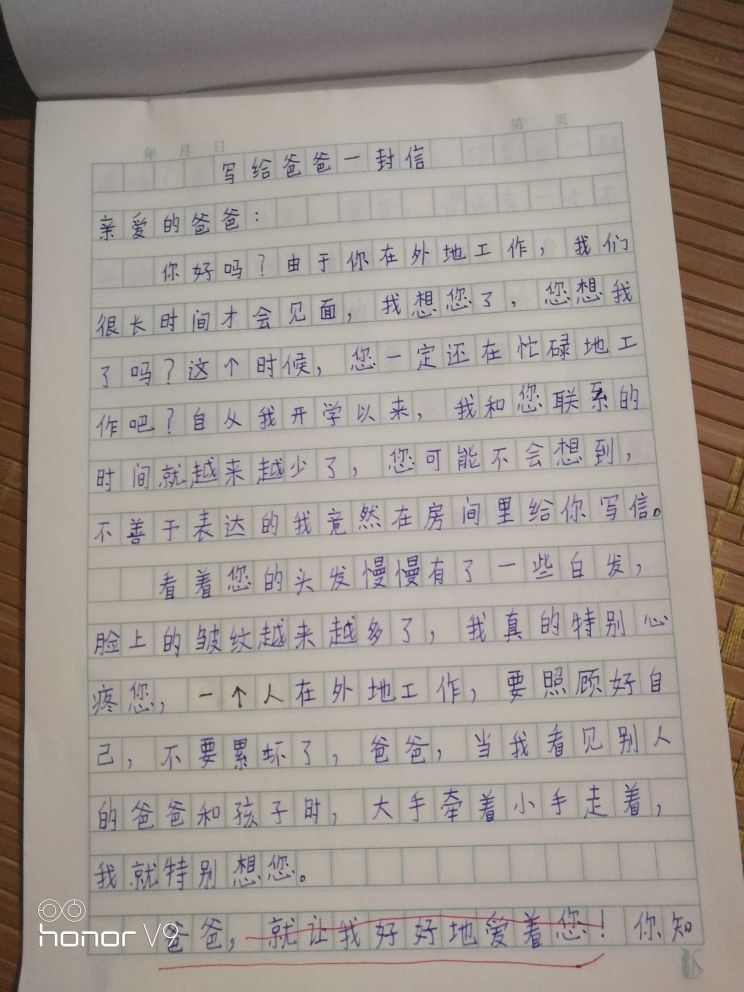 年 月 日 第 页
写给爸爸一封信
亲爱的爸爸：
你好吗？由于你在外地工作，我们
很长时间才会见面，我想您了，您想我
了吗？这个时候，您一定还在忙碌地工
作吧？自从我开学以来，我和您联系的
时间就越来越少了，您可能不会想到，
不善于表达的我竟然在房间里给你写信。
看着您的头发慢慢有了一些白发，
脸上的皱纹越来越多了，我真的特别心
疼您，一个人在外地工作，要照顾好自
己，不要累坏了，爸爸，当我看见别人
的爸爸和孩子时，大手牵着小手走着，
我就特别想您。
爸爸，就让我好好地爱着您！你知
honor V9